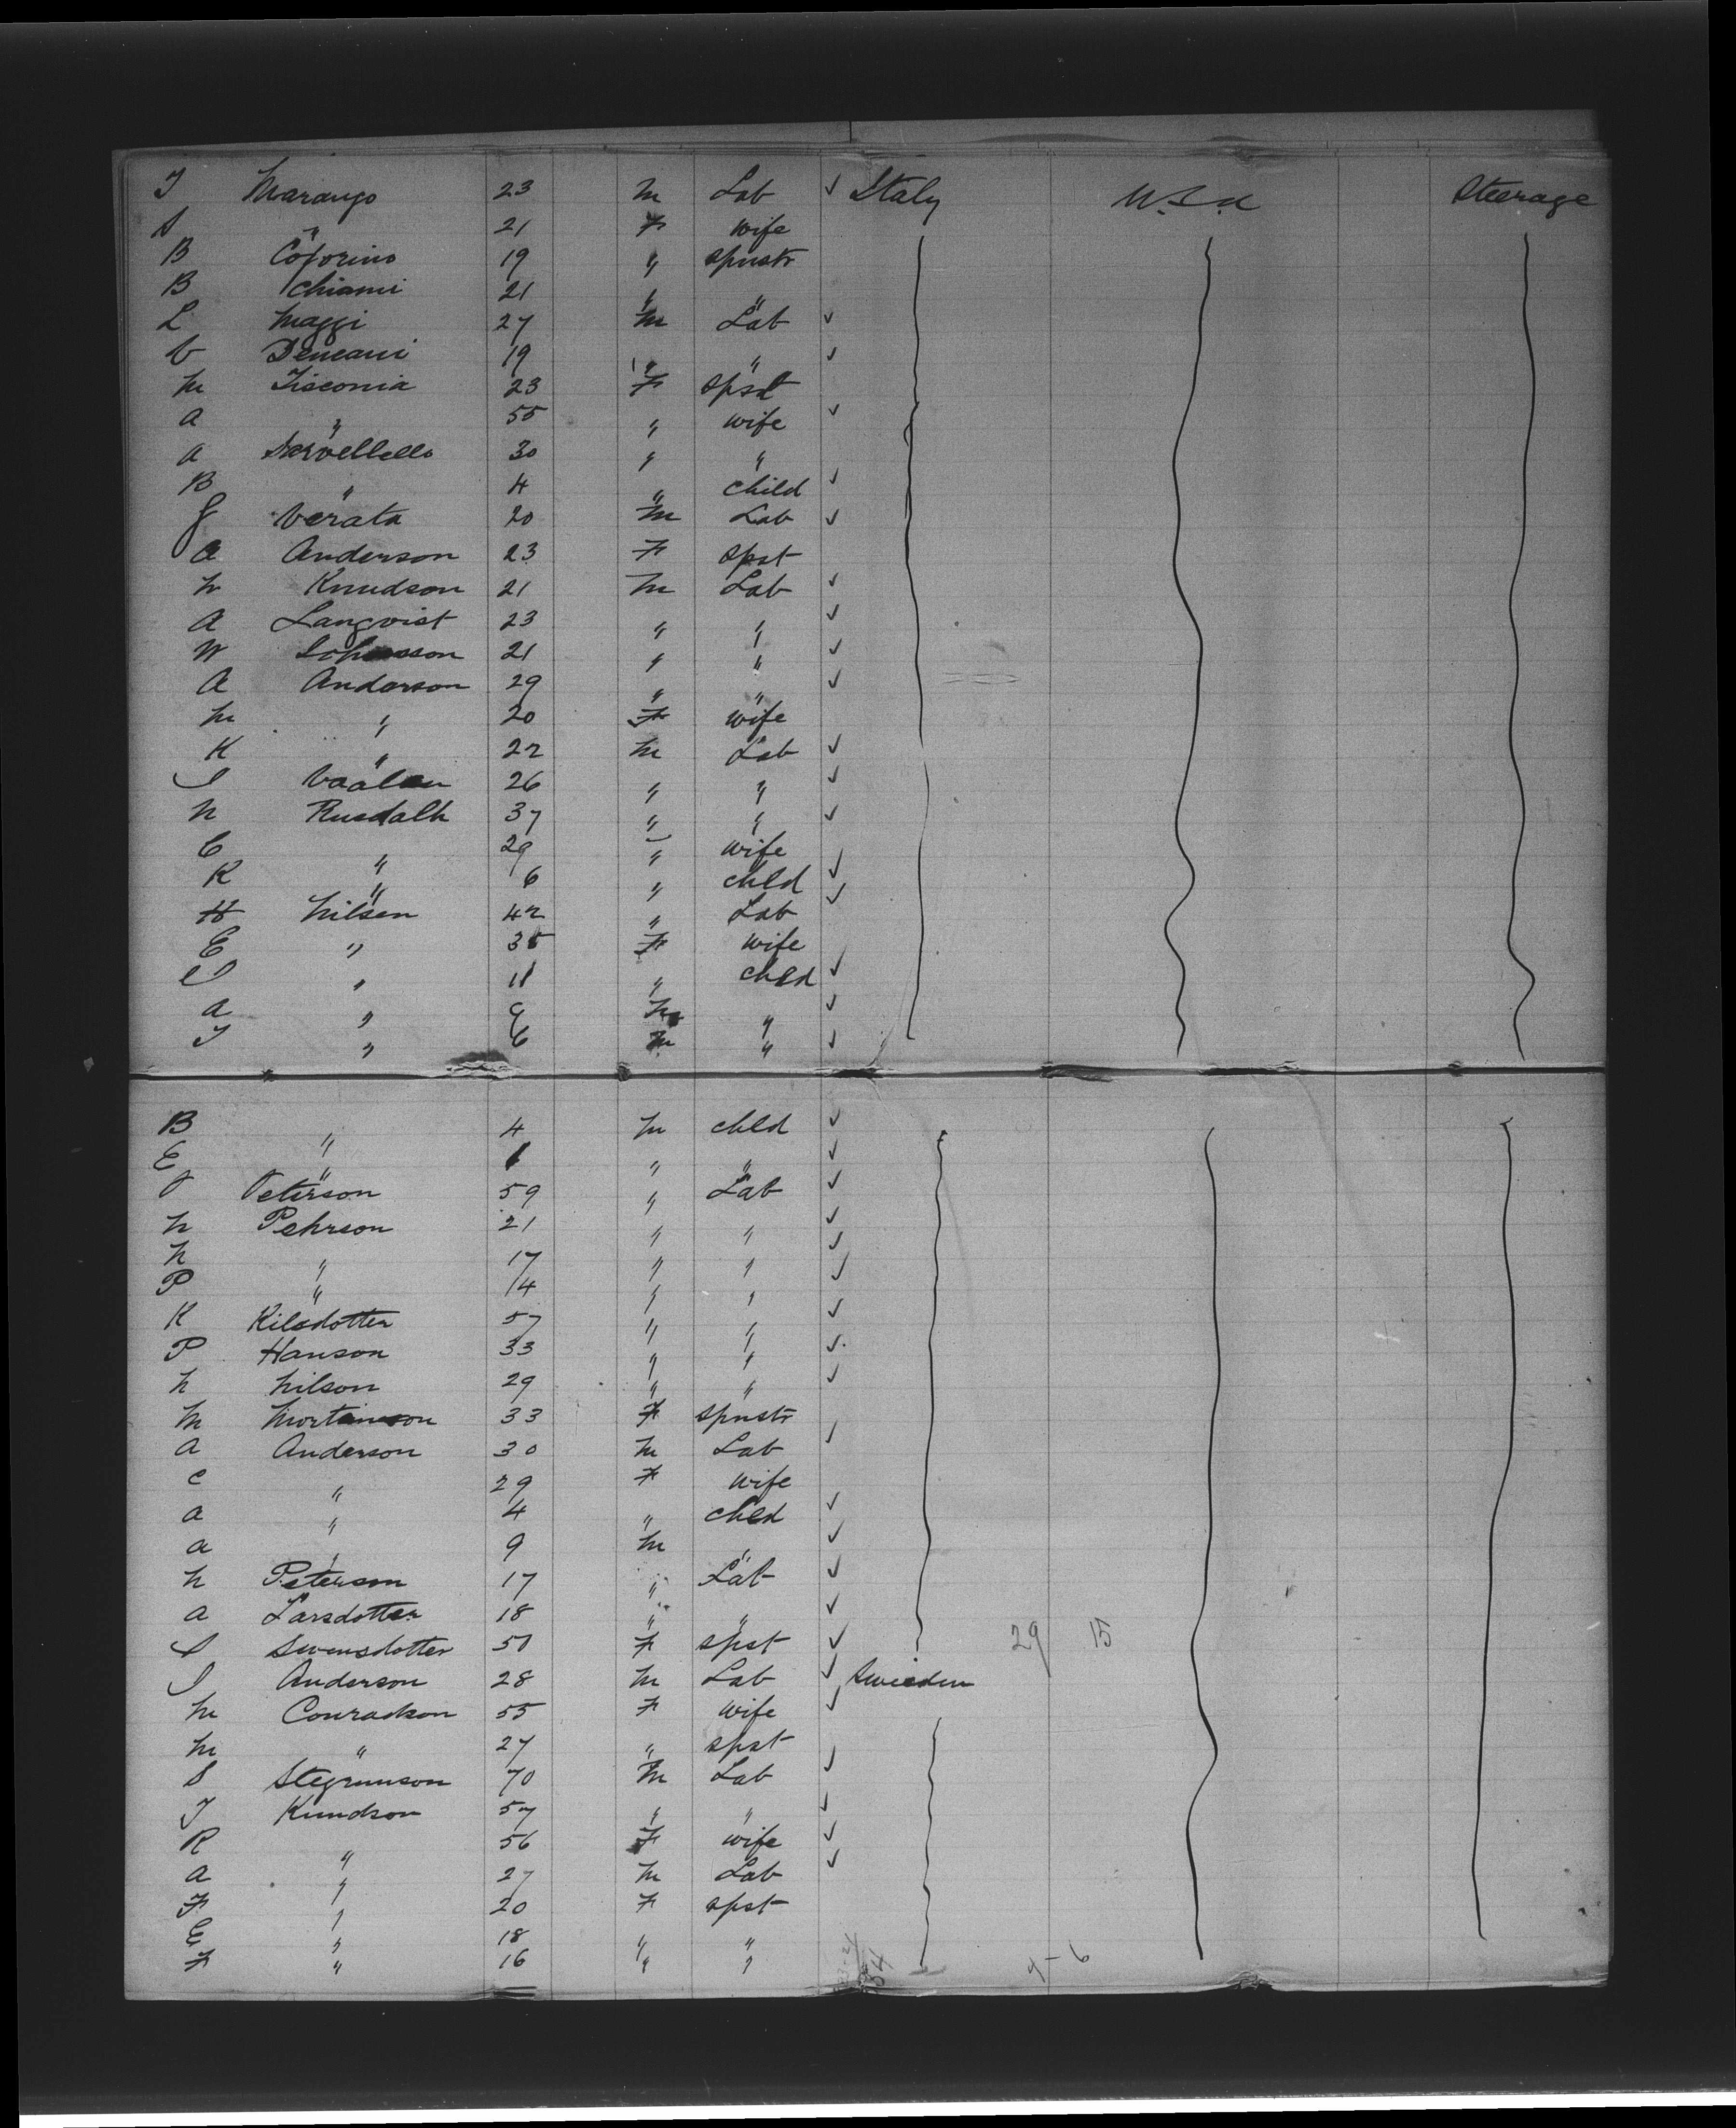 J Marango 23 m Lab ✓ Italy U.S.A Steerage
S " 21 F wife
B Coforino 19 " spnstr
B Chiami 21 " "
L Maggi 27 m Lab ✓
V Dencani 19 " " ✓
M Tisconia 23 F spst
A " 55 " wife ✓
A 30 " "
B " 4 " child ✓
G Verata 20 m Lab ✓
A Anderson 23 F spst
N Knudson 21 m Lab ✓
A Langvist 23 " " ✓
W 21 " " ✓
A Anderson 29 " " ✓
M " 20 F wife
K " 22 m Lab ✓
J Vaalen 26 " " ✓
N Rusdalh 37 " " ✓
C " 29 " wife
K " 6 " chld ✓
H Nilsen 42 " Lab ✓
E " 35 F wife
" 11 " chld ✓
A " 9 m " ✓
J " 6 m " ✓
B " 4 m chld ✓
E " 1 " " ✓
Peterson 59 " Lab ✓
N Pehrson 21 " " ✓
N " 17 " " ✓
P " 14 " " ✓
K Kilsdotter 57 " " ✓
P Hanson 33 " " ✓
N Nilson 29 " " ✓
M Mortenson 33 F spnstr
A Anderson 30 m Lab ✓
C " 29 F wife
A " 4 " chld ✓
A " 9 m " ✓
N Peterson 17 " Lab ✓
A Larsdotter 18 " " ✓
S Swensdotter 51 F spst ✓ 29 15
J Anderson 28 m Lab ✓ Sweden
M Conradson 55 F wife ✓
M " 27 " spst
S Stegrumson 70 m Lab ✓
J Knudson 57 " " ✓
R " 56 F wife ✓
A " 27 m Lab ✓
F " 20 F spst
E " 18 " "
F " 16 " "